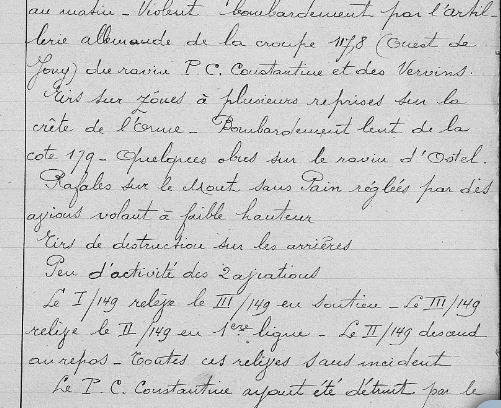 au matin – Violent bombardement par l'artil-
lerie allemande de la croupe 117,8 (Ouest de
Jouy) du ravin P.C. Constantine et des Vervins.
Tirs sur zônes à plusieurs reprises sur la
crête de l'Orme – Bombardement lent de la
cote 179 – Quelques obus sur le ravin d'Ostel.
Rafales sur le Mont sans Pain réglées par des
avions volant à faible hauteur
Tirs de destruction sur les arrières
Peu d'activité des 2 aviations
Le I/149 relève le III/149 en soutien – Le III/149
relève le II/149 en 1ère ligne – Le II/149 descend
au repos – Toutes ces relèves sans incident
Le P.C. Constantine ayant été détruit par le